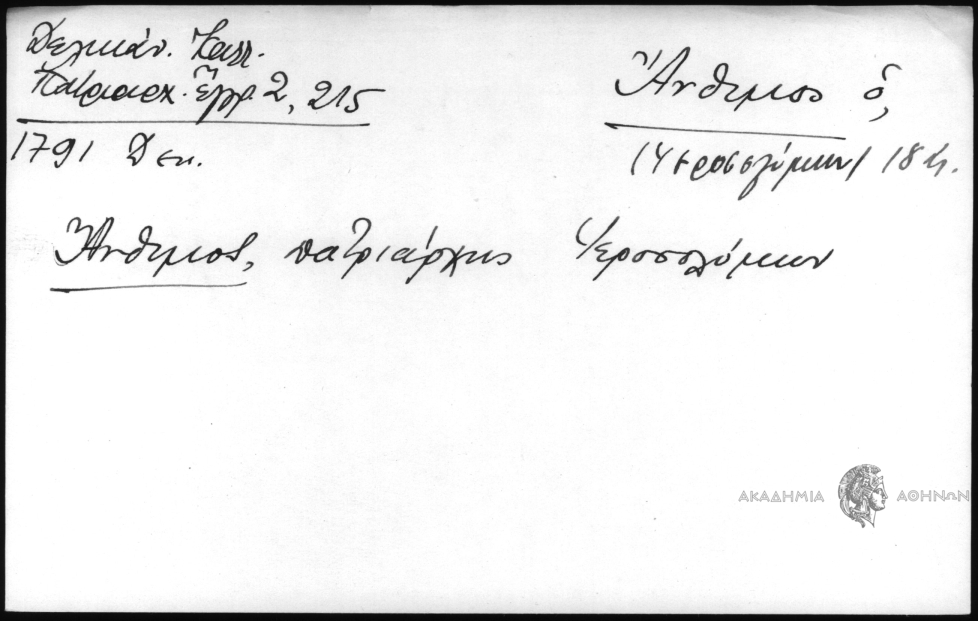 Δελικάν. Καλλ.
Πατριαρχ. Ἔγγρ. 2, 215
1791 Δεκ.
Ἄνθιμος ὁ,
(Ἱεροσολύμων) 18 αἰ.
Ἄνθιμος, πατριάρχης Ἱεροσολύμων
ΑΚΑΔΗΜΙΑ ΑΘΗΝΩΝ